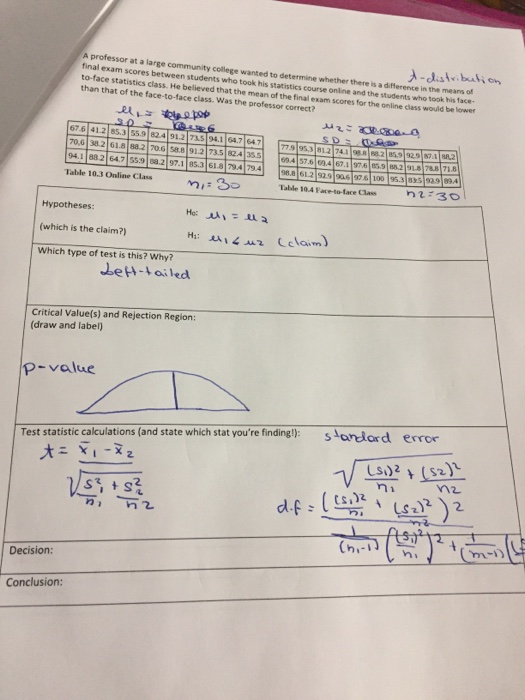 t-distribution
A professor at a large community college wanted to determine whether there is a difference in the means of
final exam scores between students who took his statistics course online and the students who took his face-
to-face statistics class. He believed that the mean of the final exam scores for the online class would be lower
than that of the face-to-face class. Was the professor correct?
u1 =
SD =
67.6 41.2 85.3 55.9 82.4 91.2 73.5 94.1 64.7 64.7
70.6 38.2 61.8 88.2 70.6 58.8 91.2 73.5 82.4 35.5
94.1 88.2 64.7 55.9 88.2 97.1 85.3 61.8 79.4 79.4
Table 10.3 Online Class
n1 = 30
u2 =
SD =
77.9 95.3 81.2 74.1 98.8 88.2 85.9 92.9 87.1 88.2
69.4 57.6 69.4 67.1 97.6 85.9 88.2 91.8 78.8 71.8
98.8 61.2 92.9 90.6 97.6 100 95.3 83.5 92.9 89.4
Table 10.4 Face-to-face Class
n2 = 30
Hypotheses:
H0: u1 = u2
(which is the claim?)
H1: u1 < u2 (claim)
Which type of test is this? Why?
Left-tailed
Critical Value(s) and Rejection Region:
(draw and label)
p-value
Test statistic calculations (and state which stat you're finding!):
standard error
t = x̄1 - x̄2
√ s1²/n1 + s2²/n2
√ (s1)²/n1 + (s2)²/n2
d.f = ( (s1)²/n1 + (s2)²/n2 )²
1/(n1-1) ( (s1)²/n1 )² + 1/(n-1) (
Decision:
Conclusion: